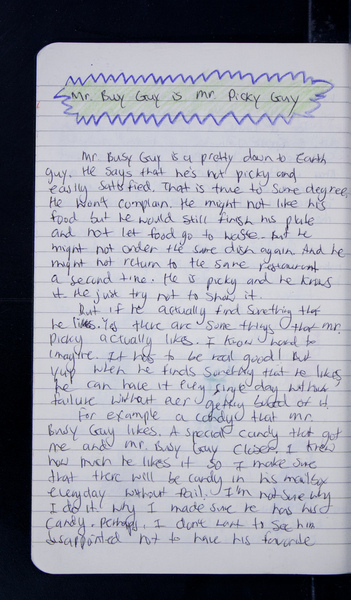 Mr. Busy Guy is Mr. Picky Guy
Mr. Busy Guy is a pretty down to Earth
guy. He says that he's not picky and
easily satisfied. That is true to some degree.
He won't complain. He might not like his
food but he would still finish his plate
and not let food go to waste. But he
might not order the same dish again And he
might not return to the same restaurant
a second time. He is picky and he knows
it. He just try not to show it.
But if he actually find something that
he likes. Yes there are some things that Mr.
Picky actually likes. I know hard to
imagine. It has to be real good! But
yup when he finds something that he likes,
he can have it every single day without
failure without ever getting bored of it.
For example a candy that Mr.
Busy Guy likes. A special candy that got
me and Mr. Busy Guy closer. I knew
how much he likes it so I make sure
that there will be candy in his mailbox
everyday without fail. I'm not sure why
I do it. Why I made sure he has his
candy. Perhaps, I don't want to see him
disappointed not to have his favorite